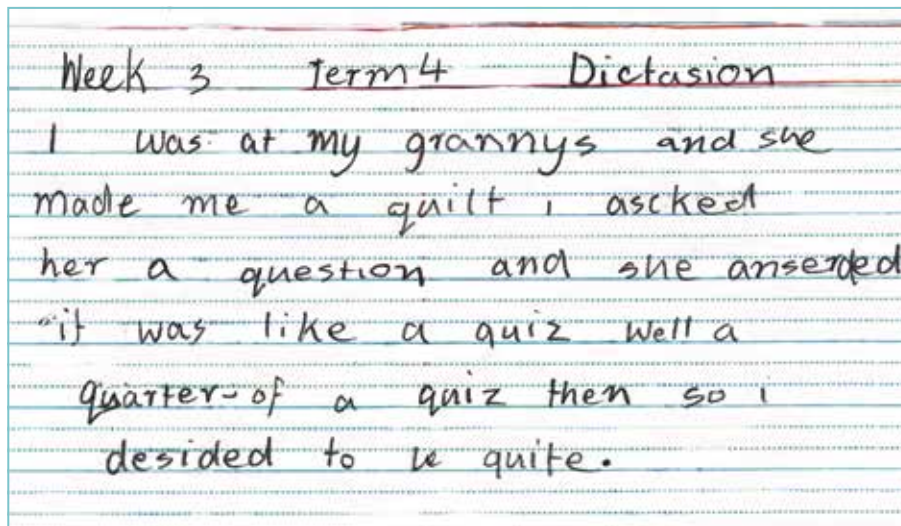 Week 3 Term 4 Dictasion
I was at my grannys and she
made me a quilt i ascked
her a question and she anserded
it was like a quiz well a
quarter of a quiz then so i
desided to be quite.